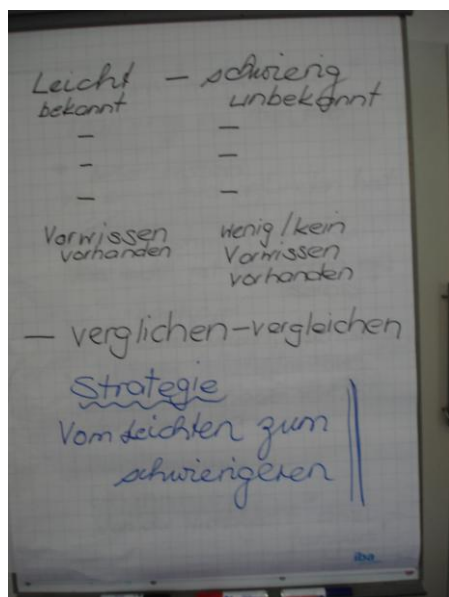 Leicht – schwierig
bekannt unbekannt
– –
– –
– –
Vorwissen wenig/kein
vorhanden Vorwissen
vorhanden
– verglichen-vergleichen
Strategie
Vom Leichten zum
schwierigeren